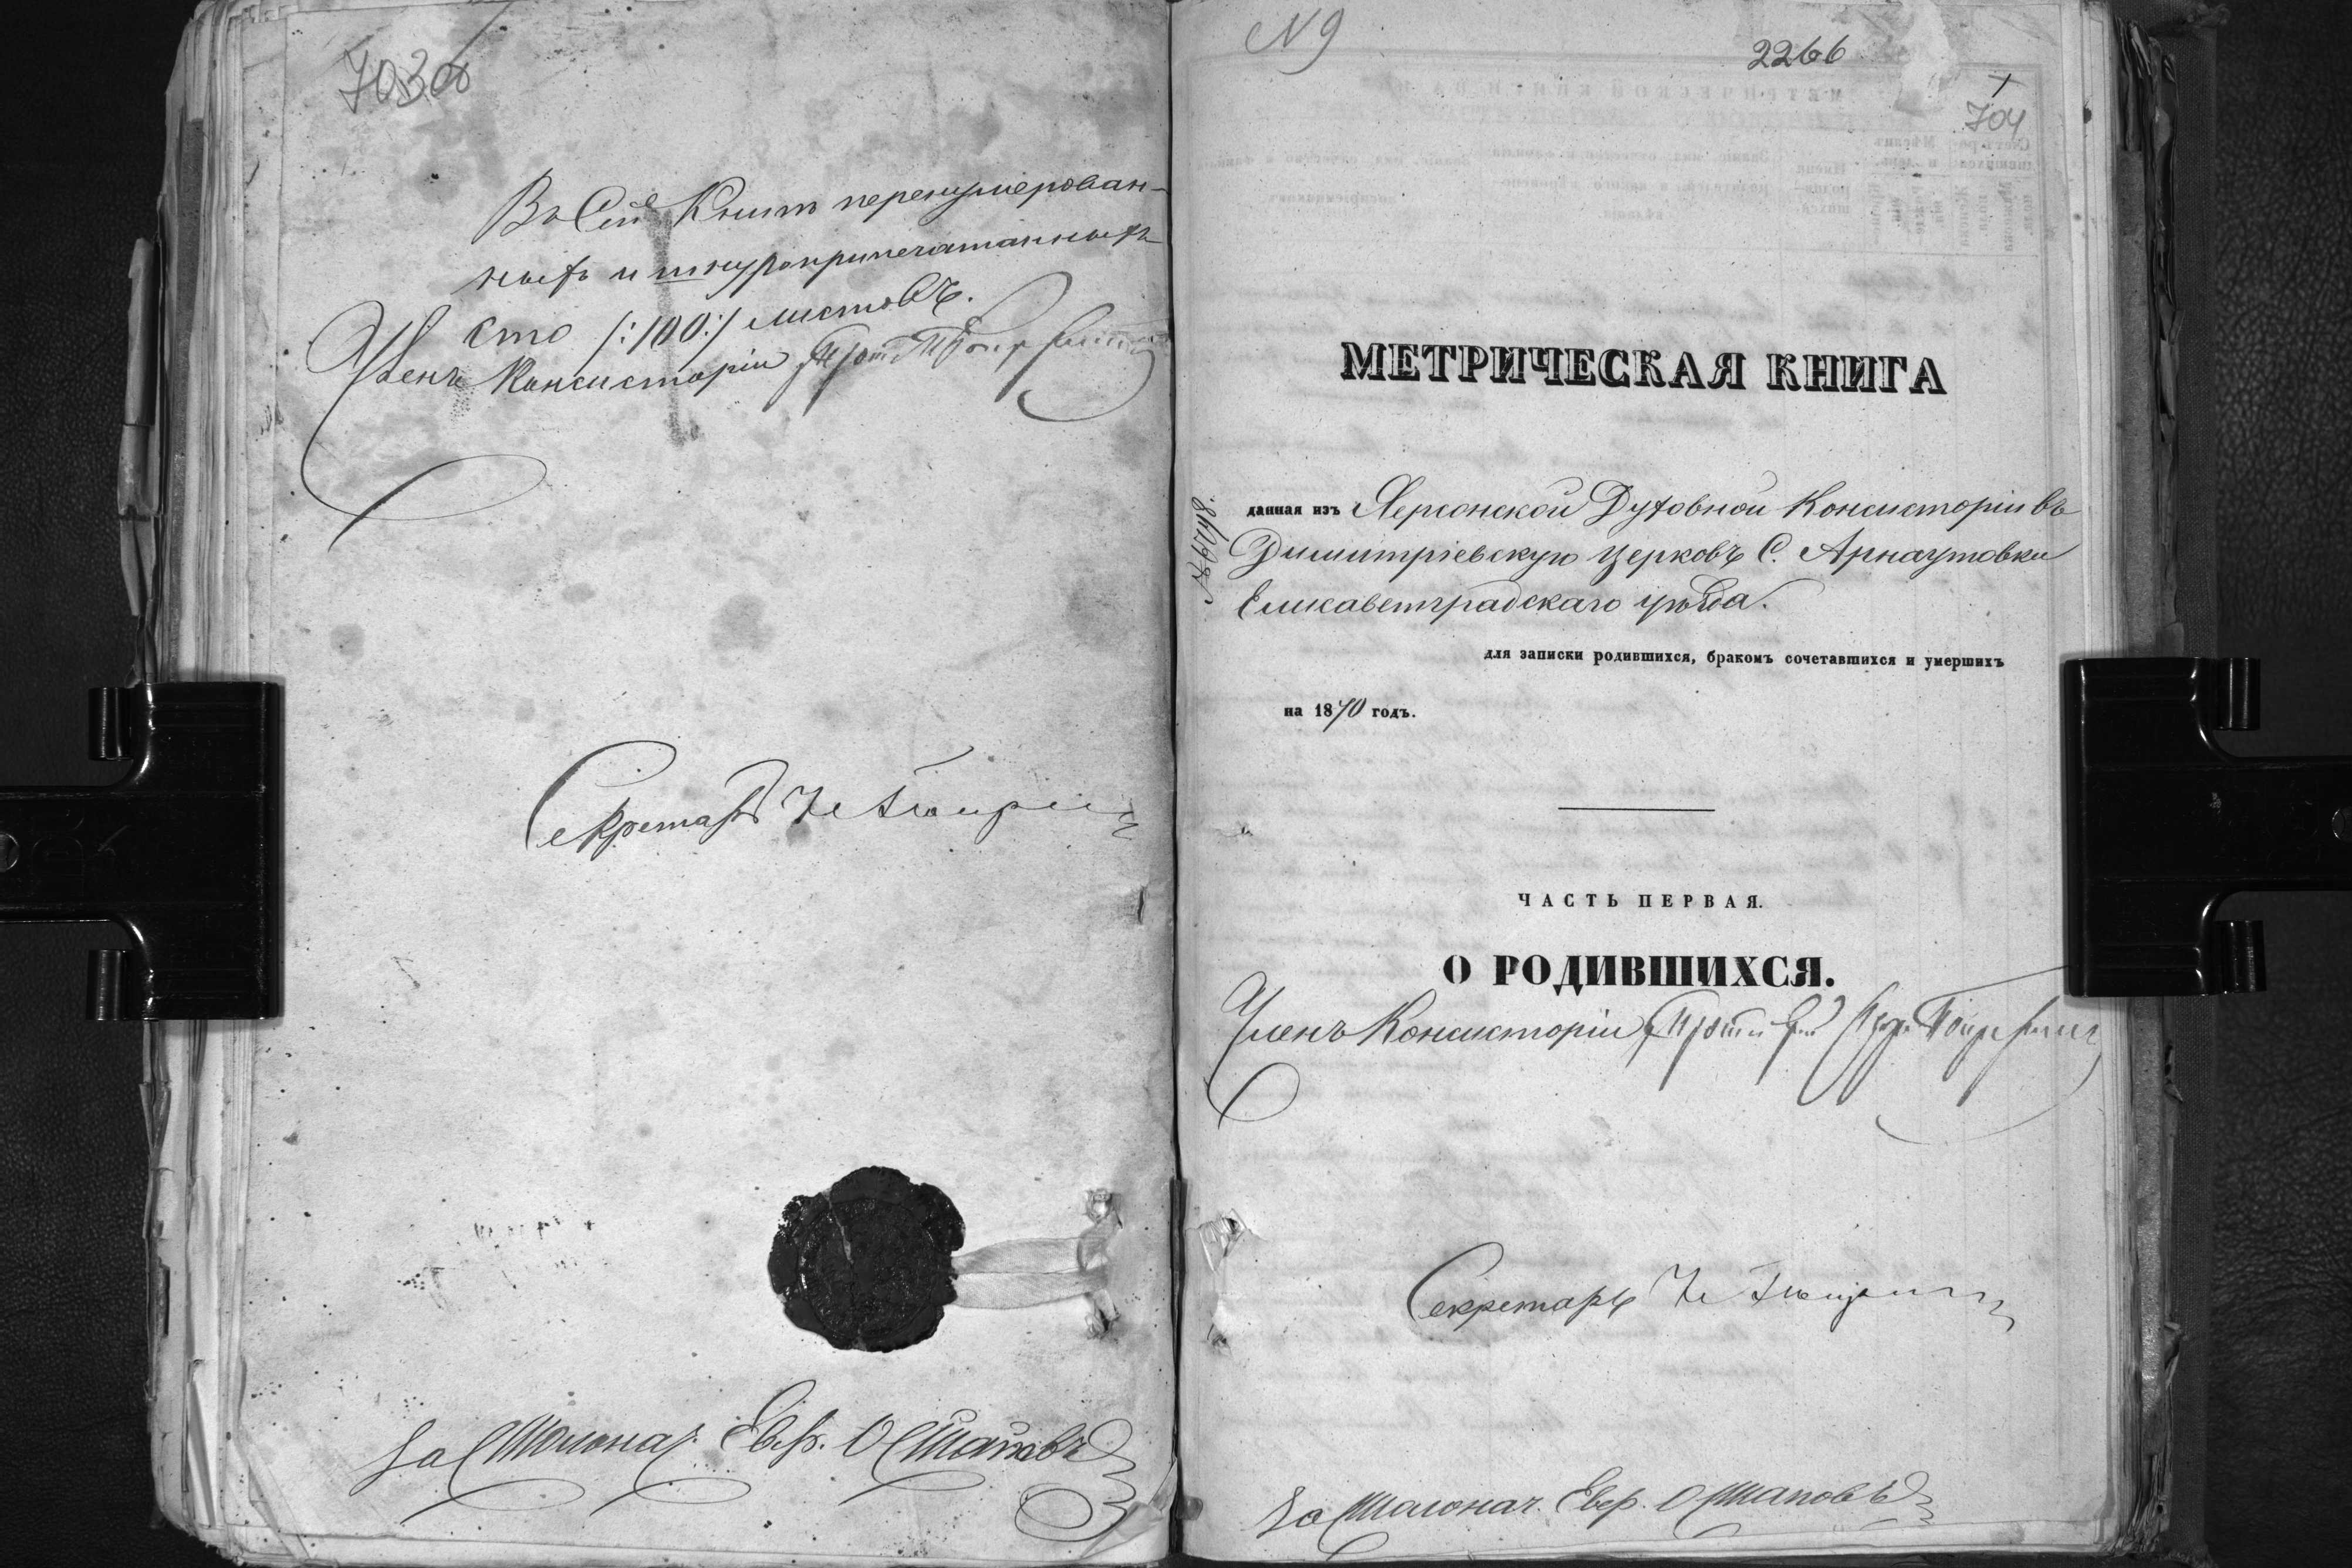 703об
Въ Сей Книгѣ перенумерован-
ныхъ и шнуроприпечатанныхъ
сто /:100:/ листовъ.
Членъ Консисторіи
Секретарь
За Столонач. Евф. Остаповъ
N 9
2266
704
МЕТРИЧЕСКАЯ КНИГА
данная изъ Херсонской Духовной Консисторіи въ
Димитріевскую церковь С. Арнаутовки
Елисаветградскаго уѣзда.
для записки родившихся, бракомъ сочетавшихся и умершихъ
на 1870 годъ.
ЧАСТЬ ПЕРВАЯ.
О РОДИВШИХСЯ.
Членъ Консисторіи
Секретарь
За Столонач. Евф. Остаповъ